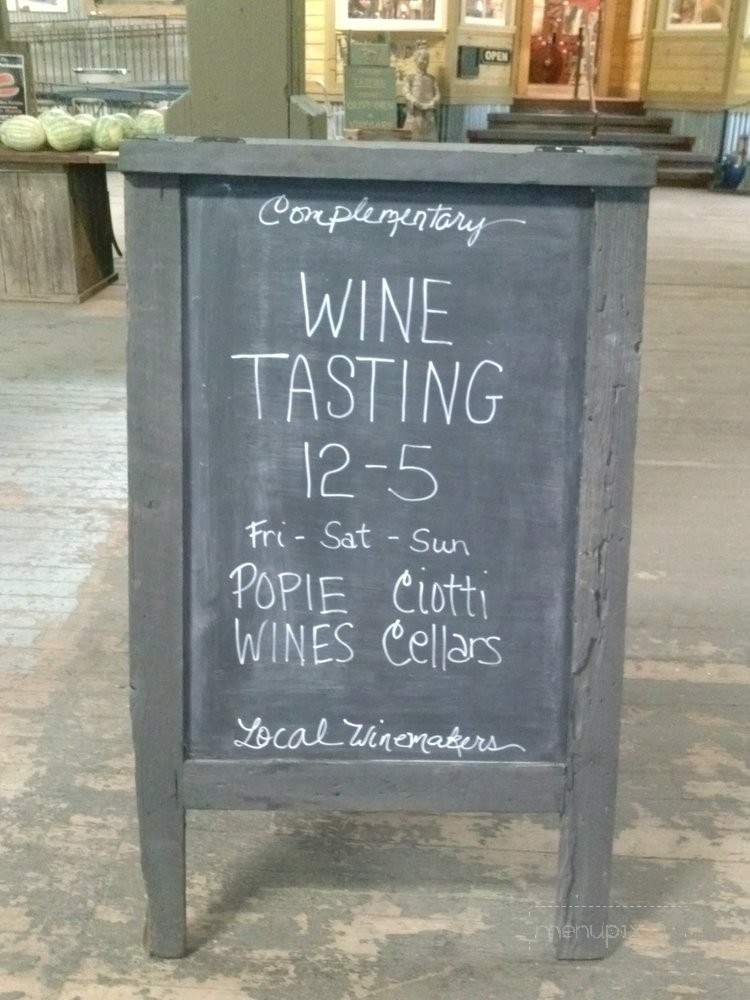 OPEN
Complementary
WINE
TASTING
12-5
Fri - Sat - Sun
POPIE Ciotti
WINES Cellars
Local Winemakers
menupix